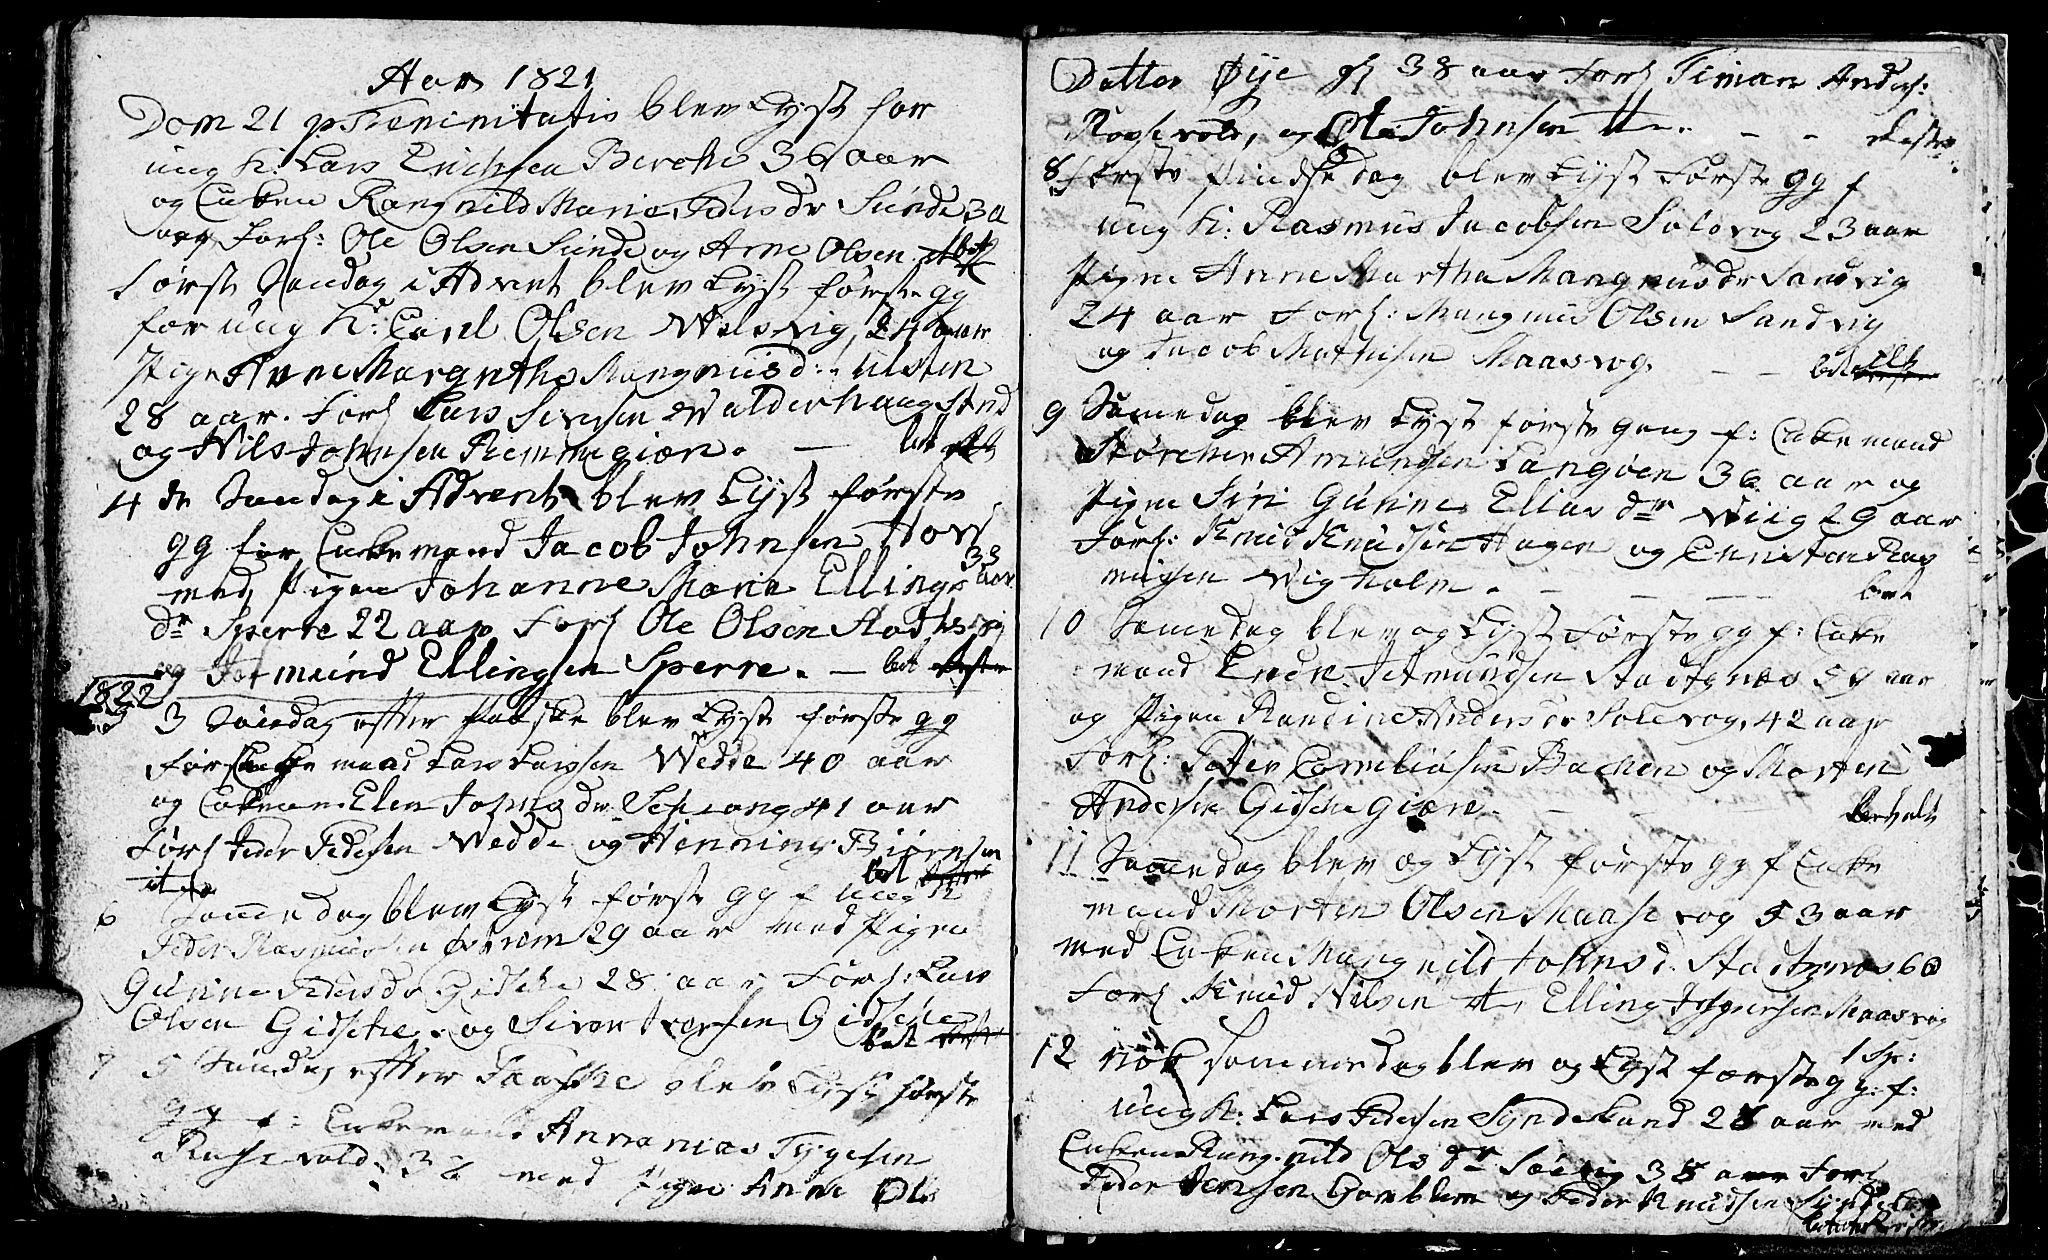 Aar 1821
Dom 21 p Trenimitatis blev Lyst for
ung K: Lars Erichsen 36 aar
og Enken Rangnild Maria Peders dr Sunde 30
aar Forl: Ole Olsen Sunde og Arne Olsen
Første Søndag i Advent blev Lyst første gg
for ung K: Carel Olsen Welsvig, 24 aar
Pige Anne Margretha Mangnus d: Ulsten
28 aar. Forl Lars Siversen Walderhaug
og Nils Johnsen Remmegiæn. — bet
4 de Søndag i Advent blev Lyst første
gg for Enkemand Jacob Johnsen How 33
med Pigen Johanne Maria Ellings aar
dr Sperre 22 aar Forl Ole Olsen
og Jetmund Ellingsen Sperre. — bet
1822
3 Søndag efter Paaske blev Lyst første gg
for Enkemand Lars Larssen Wedde 40 aar
og Enken Elen Johns dr 41 aar
Forl Peder Pedersen Wedde og Henning Biørnsen
it bet
6 Samedag blev Lyst første gg f ung K
Peder Rasmusen 29 aar med Pigen
Gunne Peders dr Gidske 28 aar Forl: Lars
Olsen Gidske. og Siver Iversen Gidske
bet
7 5 Søndag efter Paaske blev Lyst første
gg f: Enkemand Annanias Tygesen
Rosevold 38 med Pigen Anne Ols
Datter Øye 38 aar Forl Timan Anders:
Rosevold, og Ole Johnsen - -
8 Første Pindsedag blev Lyst Første gg f
ung K: Rasmus Jacobsen Solevog 23 aar
Pigen Anne Martha Mangnus dr Sandvig
24 aar Forl: Mangnus Olsen Sandvig
og Jacob Mathisen Maasvog. - -
9 Samedag blev Lyst første gang f: Enkemand
Størcher Amundsen Langøen 36 aar og
Pigen Siri Gunne Elias dr Wiig 29 aar
Forl: Knud Knudsen Hagen og Ras
musen Wigholm. - - - bet
10 Samedag blev og Lyst Første gg f: Enke
mand Endre Jetmundsen Stadtznes 59 aar
og Pigen Randine Anders dr Solevog, 42 aar
Forl: Peder Corneliusen Bachen og Morten
Andersen Gidskegiæn - - -
11 Samedag blev og Lyst første gg f Enke
mand Morten Olsen Maasevog 53 aar
med Enken Mangnild Johns d. Stadtznes 60
Forl Knud Nilsen Elling Jespersen Maasvog
12 nok sammedag blev og Lyst første gg. f:
ung K: Lars Pedersen Syndeland 28 aar med
Enken Rangnild Ols dr 38 aar Forl
Peder Jensen Gamblem og Peder Knudsen